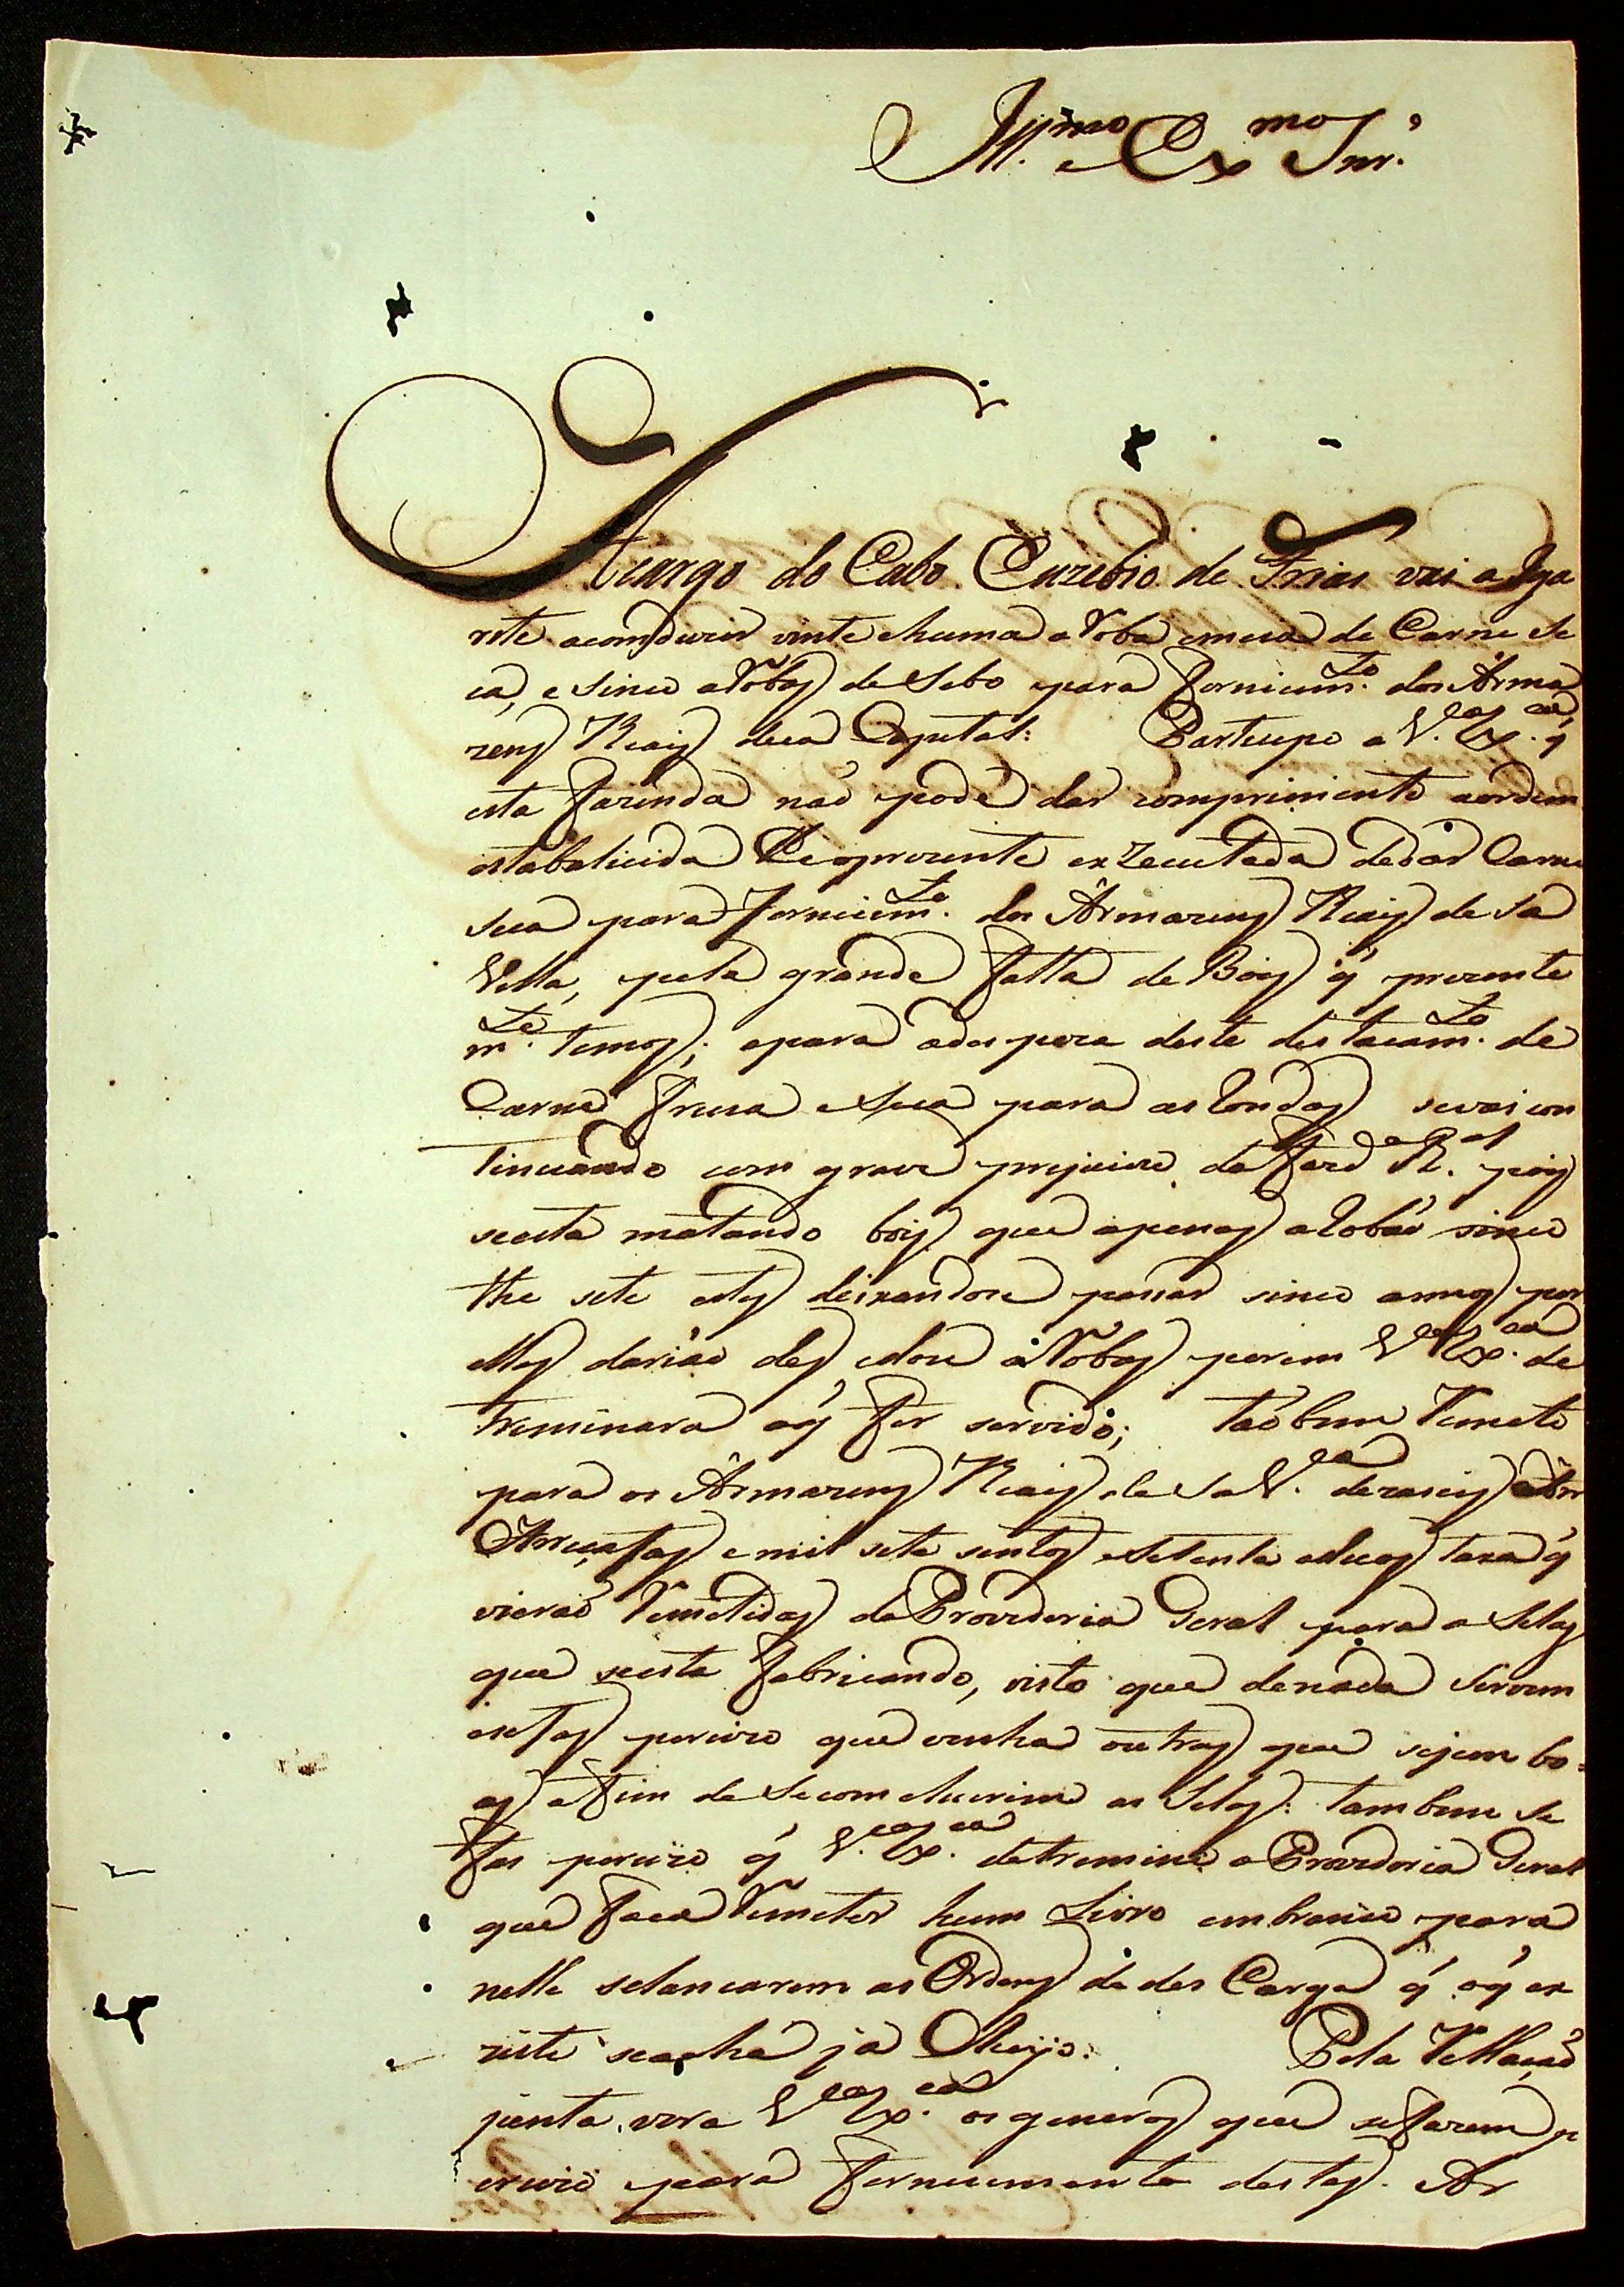 Ill.mo e Ex.mo Snr.
Acargo do Cabo Euzebio de Frias vai a Iga
rite aconduzir vinte ehuma aRoba emeia de Carne Se
ca, e Sinco aRobas de Sebo para fornicim.to dos Arma
zens Reais deca Capital: Particepo a V. Ex.cia q
esta fazenda naõ pode dar comprimento aordem
estabalicida Eeprezente exzecutada dedar Carne
seca para fornicim.to dos Armazens Reais de Sa
Villa, pela grande falta de Bois q̃ prezente
m.te temos; epara ades peza deste destacam.to de
Carne fresca eSeca para as Rondas sevai con
tinuando com grave prejuizo da Fazd.a R.al pois
seesta matando bois que apenas aRobaõ sinco
the sete estes deixandose passar sinco annos por
elles dariaõ des, edoze aRobas porem V. Ex.cia de
treminara oq̃ for servido; taõbem Remeto
para os Armazens Reais de Sa V.la dezaseis
e mil sete sentos eSetenta taxa q̃
vieraõ Remetidas da Provedoria Geral para as Selas
que seesta fabricando, visto que denada Servem
estas percizo que venha outras que sejem bo-
as afim de Secomcluirem as Selas: tambem Se
fas percizo q̃ V. Ex.cia detremine a Provedoria Geral
que faca Remeter hum Livro embranco para
nelle selancarem as Ordens de des Carga q̃ oq̃ ex
ziste seacha ja Cheijo: Pela Rellaçaõ
junta vera V. Ex.cia os generos que sefazem p
ercizo para fornecimento destes Ar